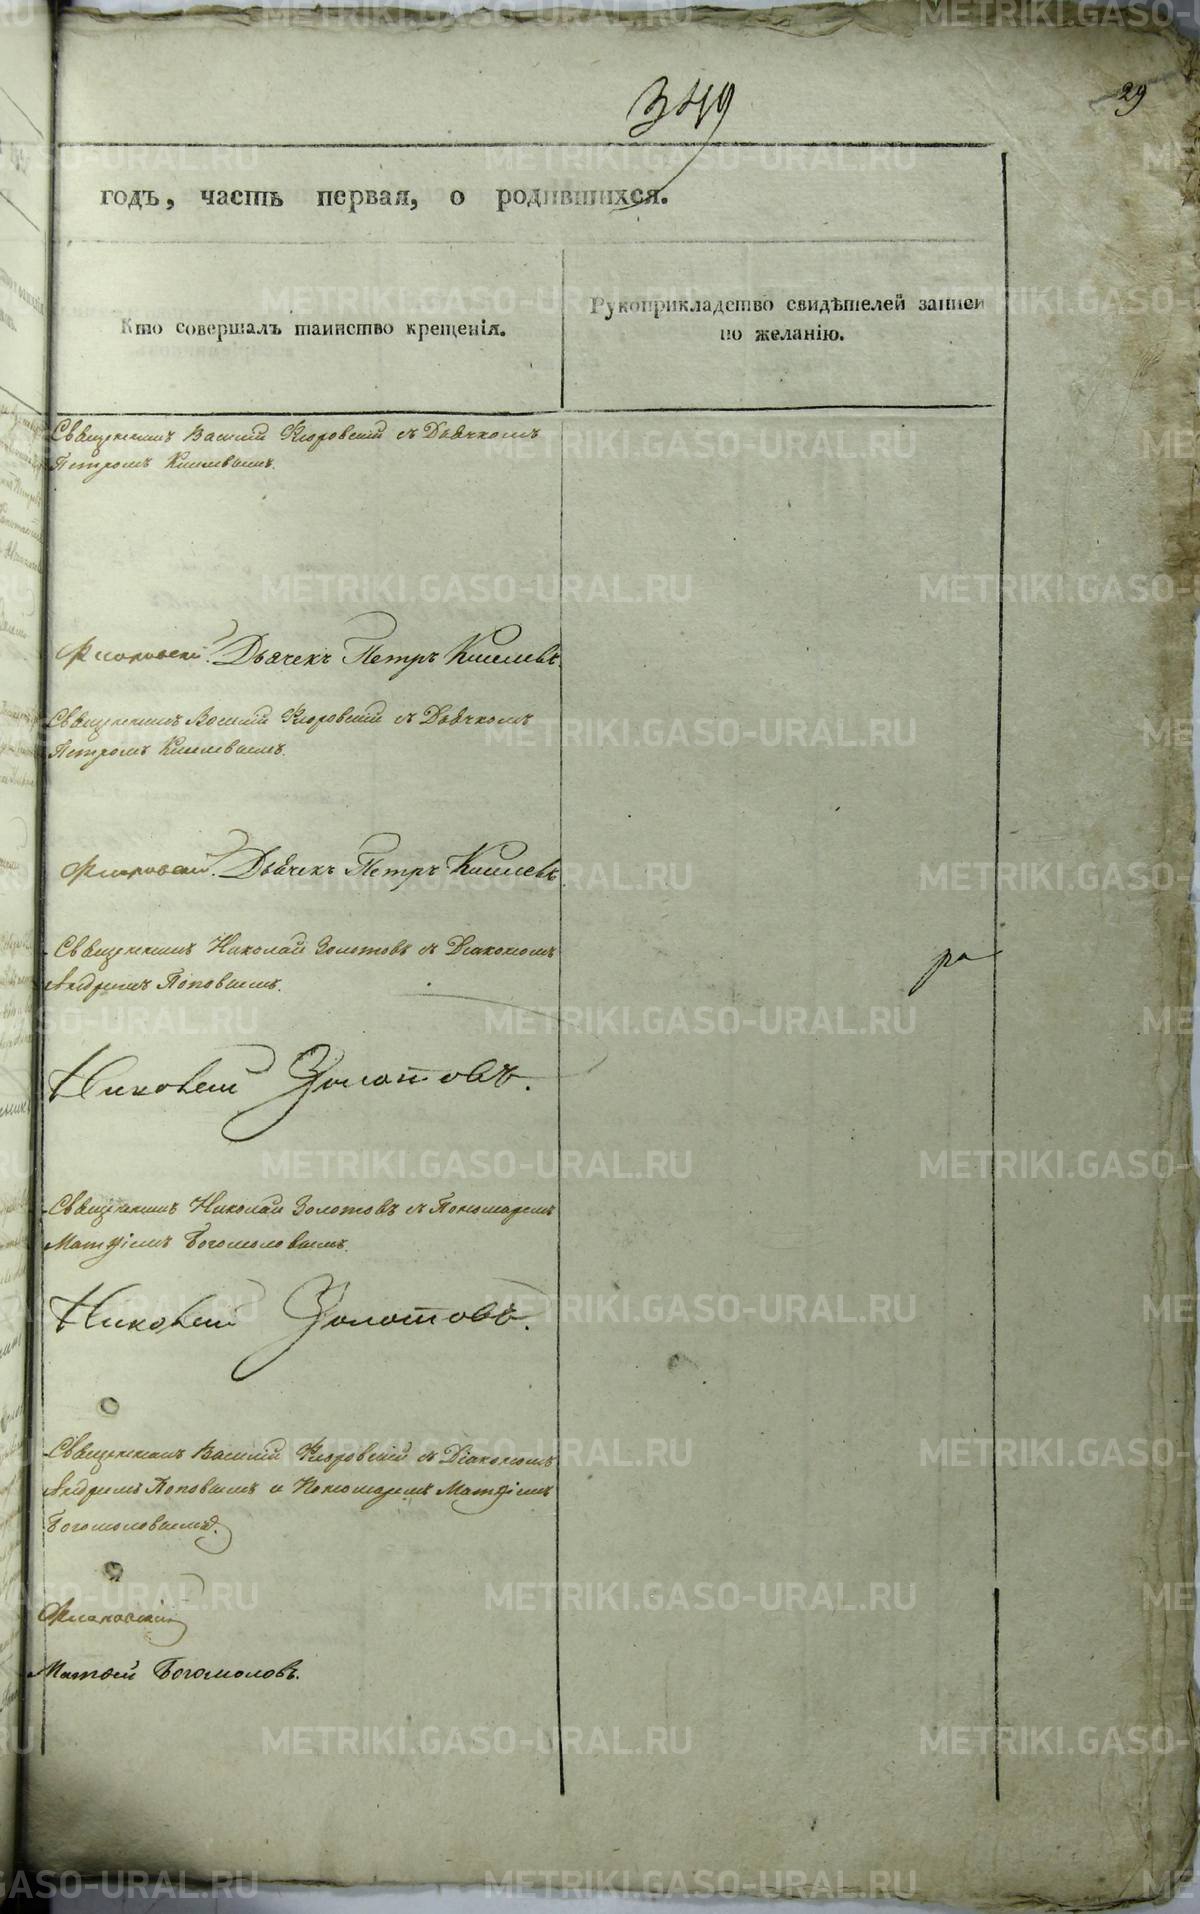 349
29
годъ, часть первая, о родившихся.
Кто совершалъ таинство крещенія.
Рукоприкладство свидѣтелей записи
по желанію.
Священникъ Василій Флоровскій съ Дьячкомъ
Петромъ Киселевымъ.
Флоровскій. Дьячекъ Петръ Киселевъ.
Священникъ Василій Флоровскій съ Дьячкомъ
Петромъ Киселевымъ.
Флоровскій. Дьячекъ Петръ Киселевъ
Священникъ Николай Золотовъ съ Діакономъ
Андреемъ Поповымъ.
Николай Золотовъ.
Священникъ Николай Золотовъ съ Пономаремъ
Матѳіемъ Богомоловымъ.
Николай Золотовъ.
Священникъ Василій Флоровскій съ Діакономъ
Андреемъ Поповымъ и Пономаремъ Матѳіемъ
Богомоловымъ.
Флоровскій
Матѳей Богомоловъ.
METRIKI.GASO-URAL.RU